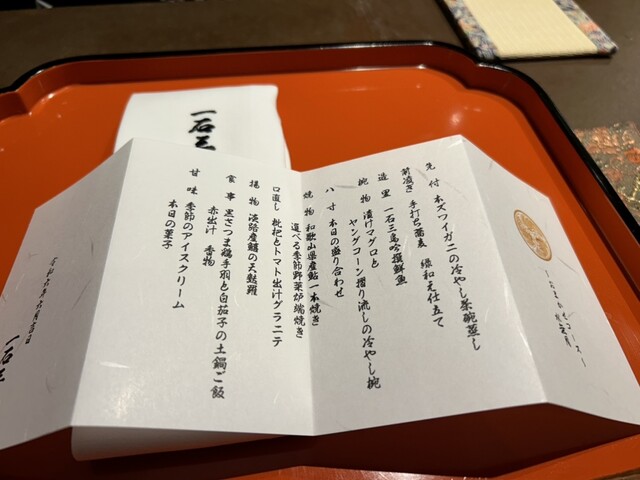 先付 本ズワイガニの冷やし茶碗蒸し
前凌ぎ 手打ち蕎麦 緑和元仕立て
造里 一石三鳥吟撰鮮魚
椀物 漬けマグロと
ヤングコーン摺り流しの冷やし椀
八寸 本日の盛り合わせ
焼物 和歌山県産鮎一本焼き
選べる季節野菜炉端焼き
口直し 枇杷とトマト出汁グラニテ
揚物 淡路産鱧の天麩羅
食事 黒さつま鶏手羽と白茄子の土鍋ご飯
赤出汁 香物
甘味 季節のアイスクリーム
本日の菓子
一石三